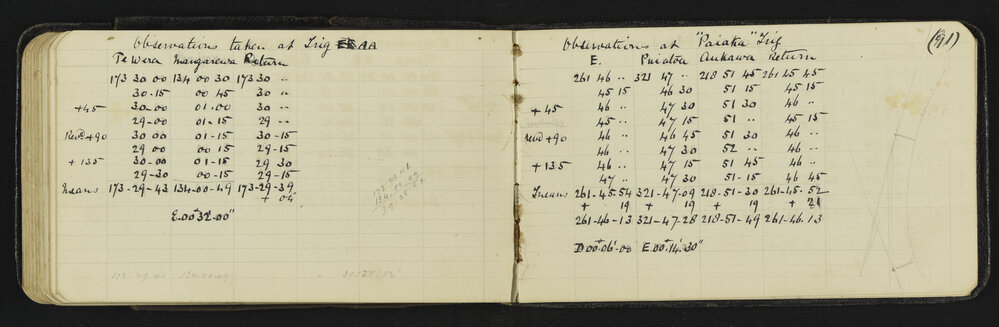 Observations taken at Trig AA
Te Wera Mangarewa Return
173 30 00 134 00 30 173 30 "
30-15 00 45 30 "
+45 30-00 01-00 30 "
29-00 01-15 29 "
Revd +90 30 00 01-15 30-15
29 00 00 15 29-15
+135 30-00 01-15 29 30
29-30 00-15 29-15
Means 173-29-43 134-00-49 173-29-39
+04"
E.00°32'.00"
173 29 41
134.00 49
39 28 52
173 29.41 134.00 49 39 28' 52"
(91)
Observations at "Paiaka" Trig
E. Puiatoa Aukawa Return
261 46 " 321 47 " 218 51 45 261 45 45
45 15 46 30 51 15 45 15
+45 46 " 47 30 51 30 46 "
45 " 47 15 51 " 45 15
Revd +90 46 " 46 45 51 30 46 "
46 " 47 30 52 " 46 "
+135 46 " 47 15 51 45 46 "
47 " 47 30 51-15 46 45
Means 261-45-54 321-47-09 218-51-30 261-45-52
+ 19 + 19 + 19 + 21
261-46-13 321-47-28 218-51-49 261-46.13
D 00°.06'.00 E.00°.14'.30"